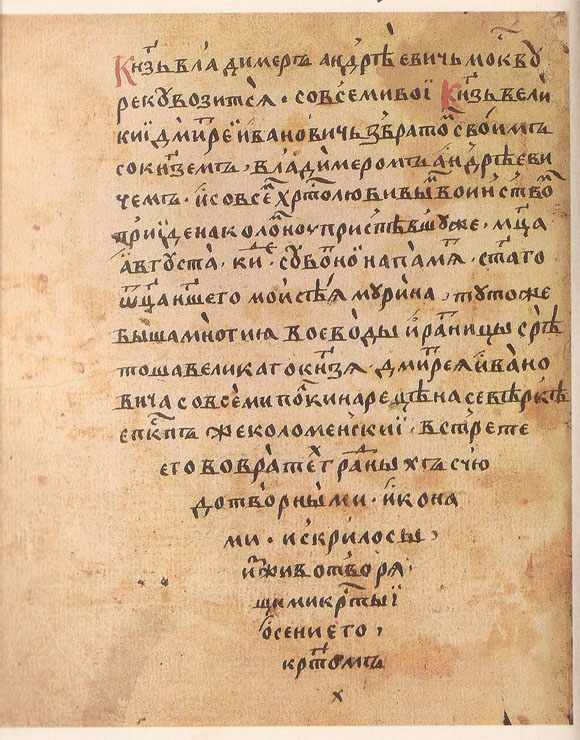 Кн҃зь владимеръ андрѣевичь москву
реку возится · со всеми вои Кн҃зь вели
кїи дмитреи ивановичь з братомъ своимъ
со кн҃земъ, владимеромъ андрѣеви
чемъ · и со всѣм хр҃толюбивымъ воинством
приїде на коломну приспѣвшу же · мц҃а
августа · ки҃ · де субото на памят · ст҃аго
ѿц҃а нш҃его моисѣя мурина, ту то же
быша мнотия воеводы и ратницы срѣ
тоша великаго кн҃зя дмитрея ивано
вича со всеми полки на рецѣ на севѣркѣ
еп҃кпъ же коломенскиї · встрете
его во вратех градныхъ с чю
дотворными · икона
ми · и с крилосы,
и з животворя
щими кр҃ты ї
осени его,
кр҃томъ
х